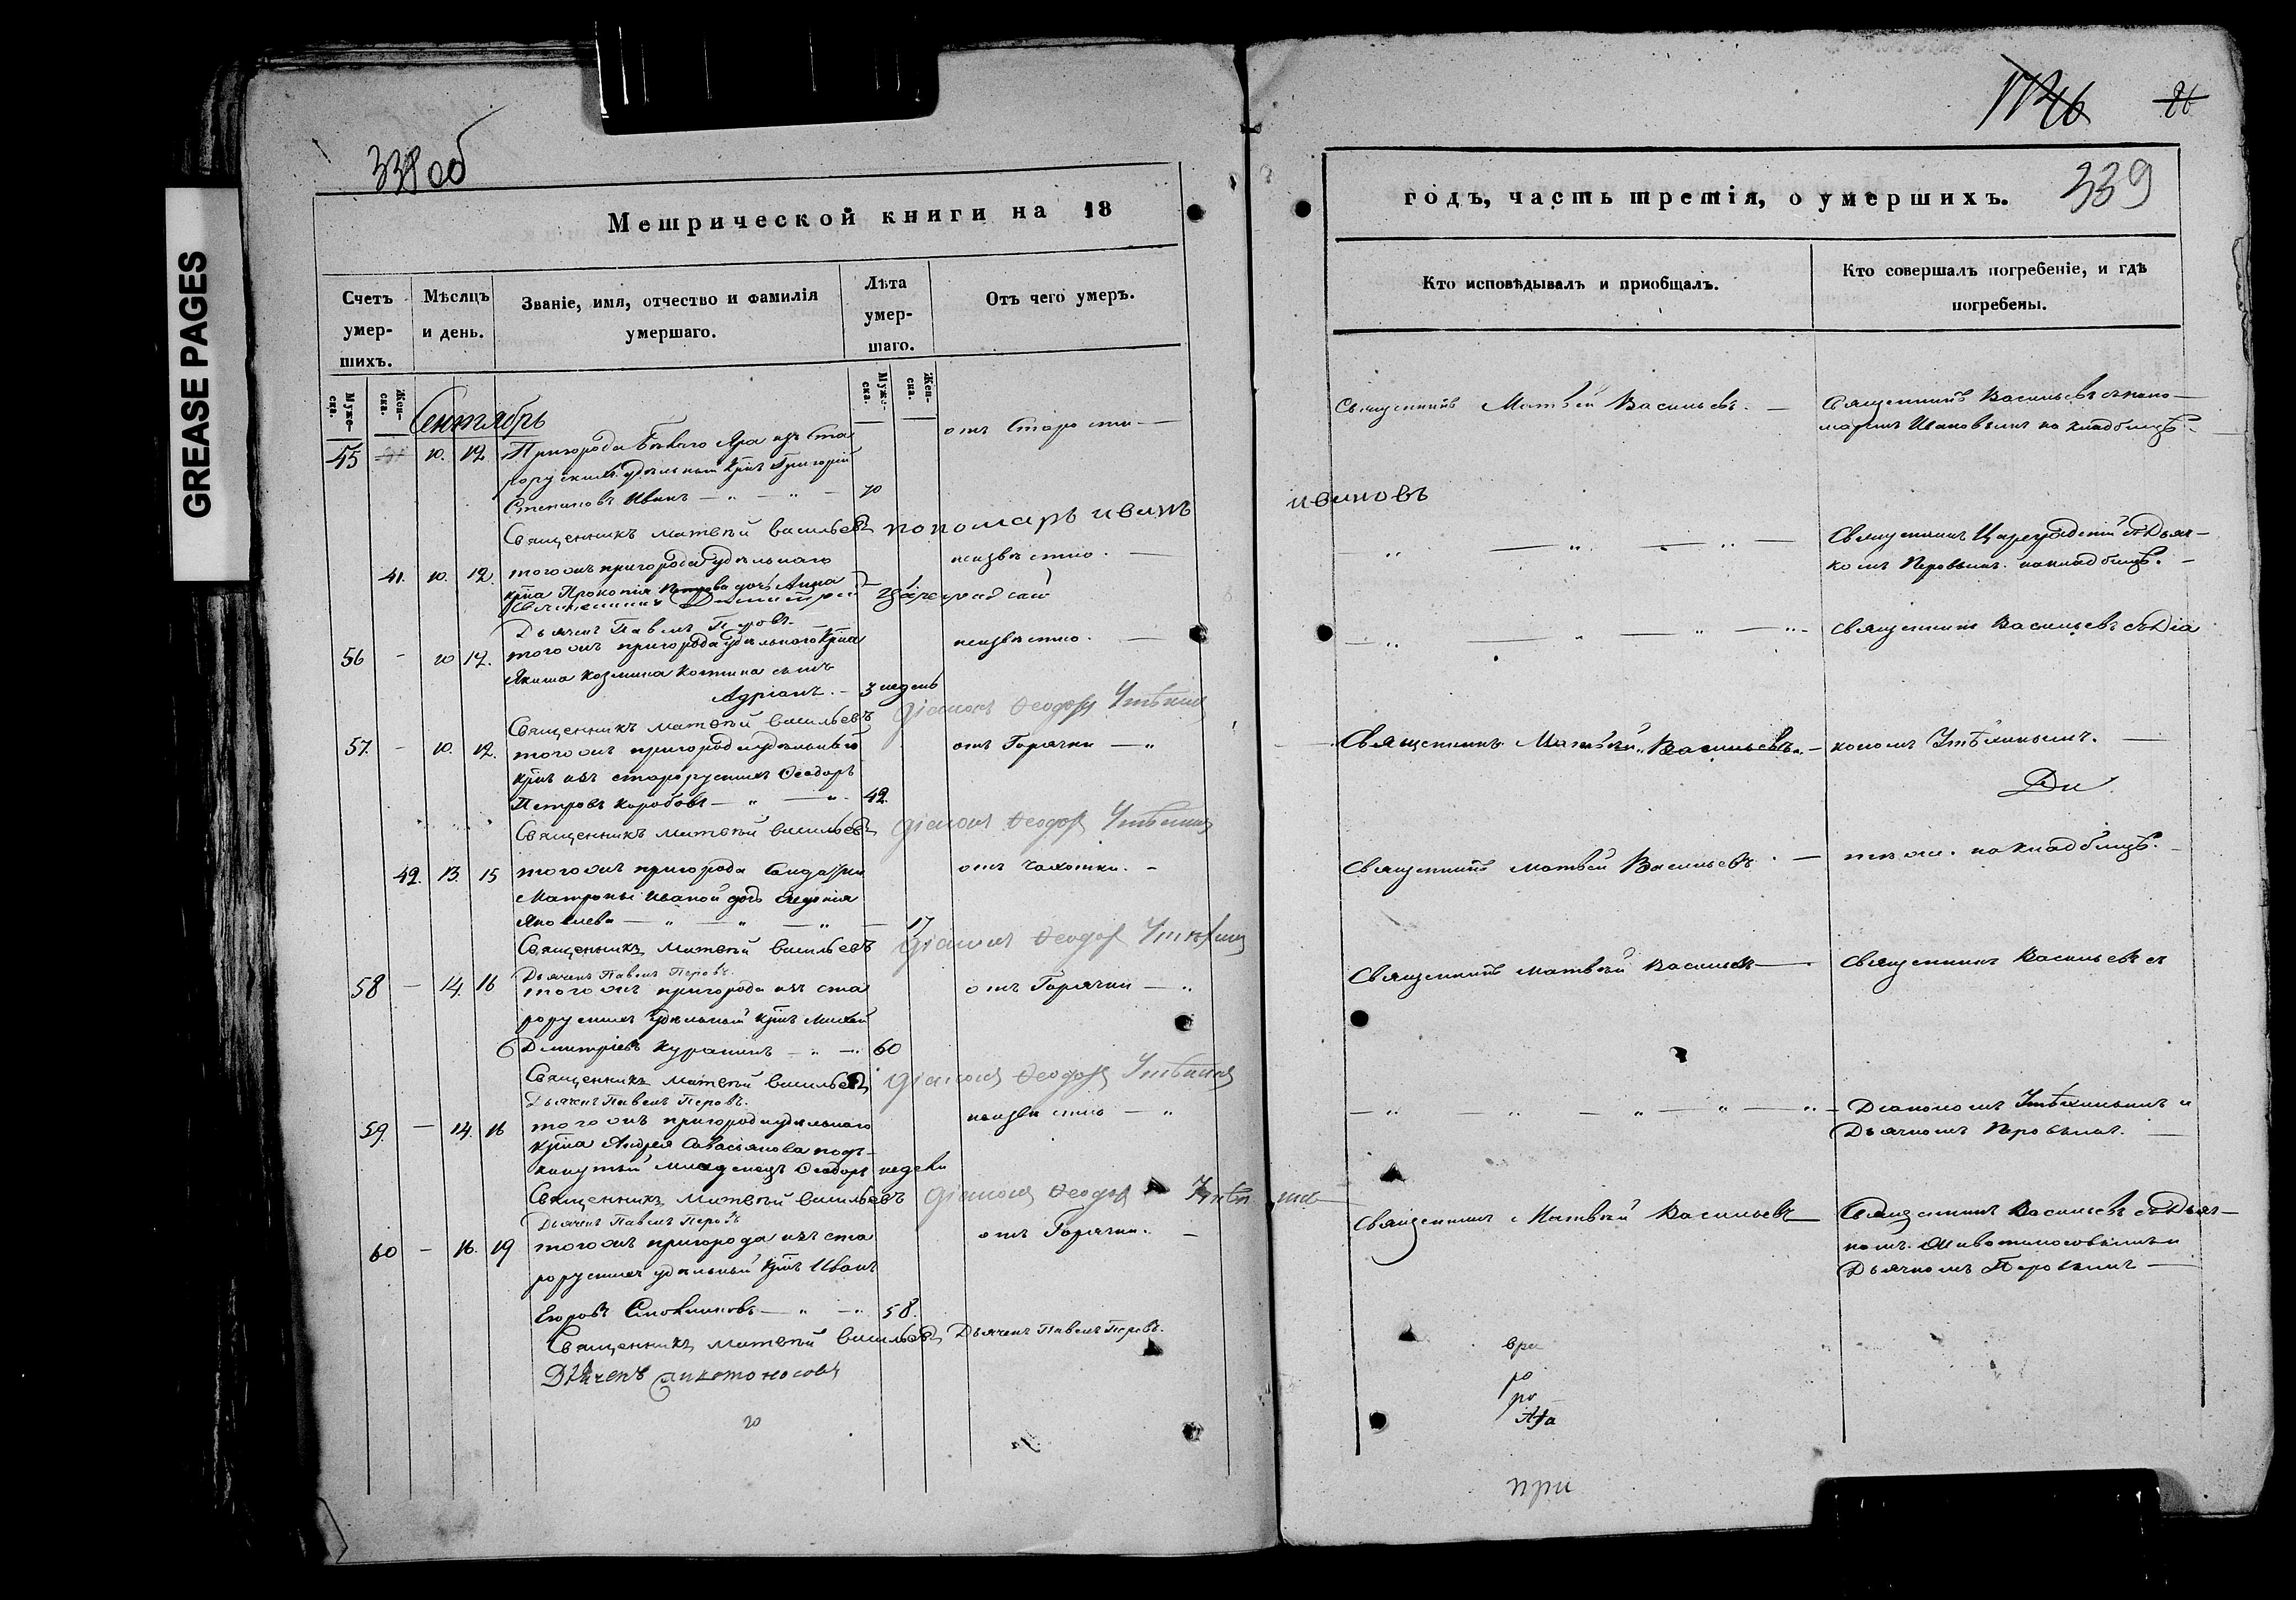 GREASE PAGES
338 об
Метрической книги на 18
Счетъ умер-шихъ.
Мѣсяцъ и день.
Званіе, имя, отчество и фамилія умершаго.
Лѣта умер-шаго.
Отъ чего умеръ.
Муже-ска.
Жен-ска.
Муже-ска.
Жен-ска.
Сентябрь
10. 12 Пригорода Бѣлаго Яра изъ Ста
рорускихъ удѣльный Крнъ Григорій
Степановъ Ивинъ 70
отъ Старости
Священникъ Матвѣй Васильевъ пономарь иванъ
41. 10. 12 тогожъ пригорода удѣльнаго
крна Прокопія Петрова дочь Анна
неизвѣстно.
Священникъ Димитрей Цареградскій
Дьячекъ Павелъ Перовъ
56 - 10 12. тогожъ пригорода удѣльнаго Крна
Якима Козмина Костина сынъ
Адріанъ. 3 недель
неизвѣстно.
Священникъ Матвѣй Васильевъ діаконъ Ѳеодоръ Утѣхинъ
57. - 10. 12. тогожъ пригорода удѣльный
крнъ изъ старорускихъ Ѳеодоръ
Петровъ Коробовъ 42.
отъ Горячки
Священникъ Матвѣй Васильевъ діаконъ Ѳеодоръ Утѣхинъ
42. 13. 15 тогожъ пригорода Солдатки
Матроны Ивановой дочь
Яковлева 17
отъ Чахотки.
Священникъ Матвѣй Васильевъ діаконъ Ѳеодоръ Утѣхинъ
Дьячекъ Павелъ Перовъ.
58 - 14. 16 тогожъ пригорода изъ ста
рорускихъ удѣльный крнъ Михей
Дмитріевъ Курашинъ 60
отъ Горячки
Священникъ Матвѣй Васильевъ діаконъ Ѳеодоръ Утѣхинъ
Дьячекъ Павелъ Перовъ.
59. - 14. 16 тогожъ пригорода удѣльнаго
крна Андрея Савасьянова подъ-
кинутый младенецъ Ѳеодоръ недели
неизвѣстно
Священникъ Матвѣй Васильевъ діаконъ Ѳеодоръ
Дьячекъ Павелъ Перовъ
60 - 16. 19 тогожъ пригорода изъ ста
рорускихъ удѣльный крнъ Иванъ
Егоровъ 58.
отъ Горячки.
Священникъ Матвѣй Васильевъ Дьячекъ Павелъ Перовъ.
Дьячекъ
20
26
339
годъ, часть третія, о умершихъ.
Кто исповѣдывалъ и пріобщалъ.
Кто совершалъ погребеніе, и гдѣ погребены.
Священникъ Матвѣй Васильевъ.
Священникъ Васильевъ съ поно-
маремъ Ивановымъ на кладбищѣ.
ивановъ
Священникъ Цареградскій съ Дьяч-
комъ Перовымъ на кладбищѣ.
Священникъ Васильевъ съ Діа
Священникъ Матвѣй Васильевъ.
кономъ Утѣхинымъ.
Ди
Священникъ Матвѣй Васильевъ
тѣже. на кладбищѣ.
Священникъ Матвѣй Васильевъ
Священникъ Васильевъ съ
Діакономъ Утѣхинымъ и
Дьячкомъ Перовымъ.
Священникъ Матвѣй Васильевъ
Священникъ Васильевъ съ Дьяч-
комъ
Дьячкомъ Перовымъ
ври
ро
ро
при